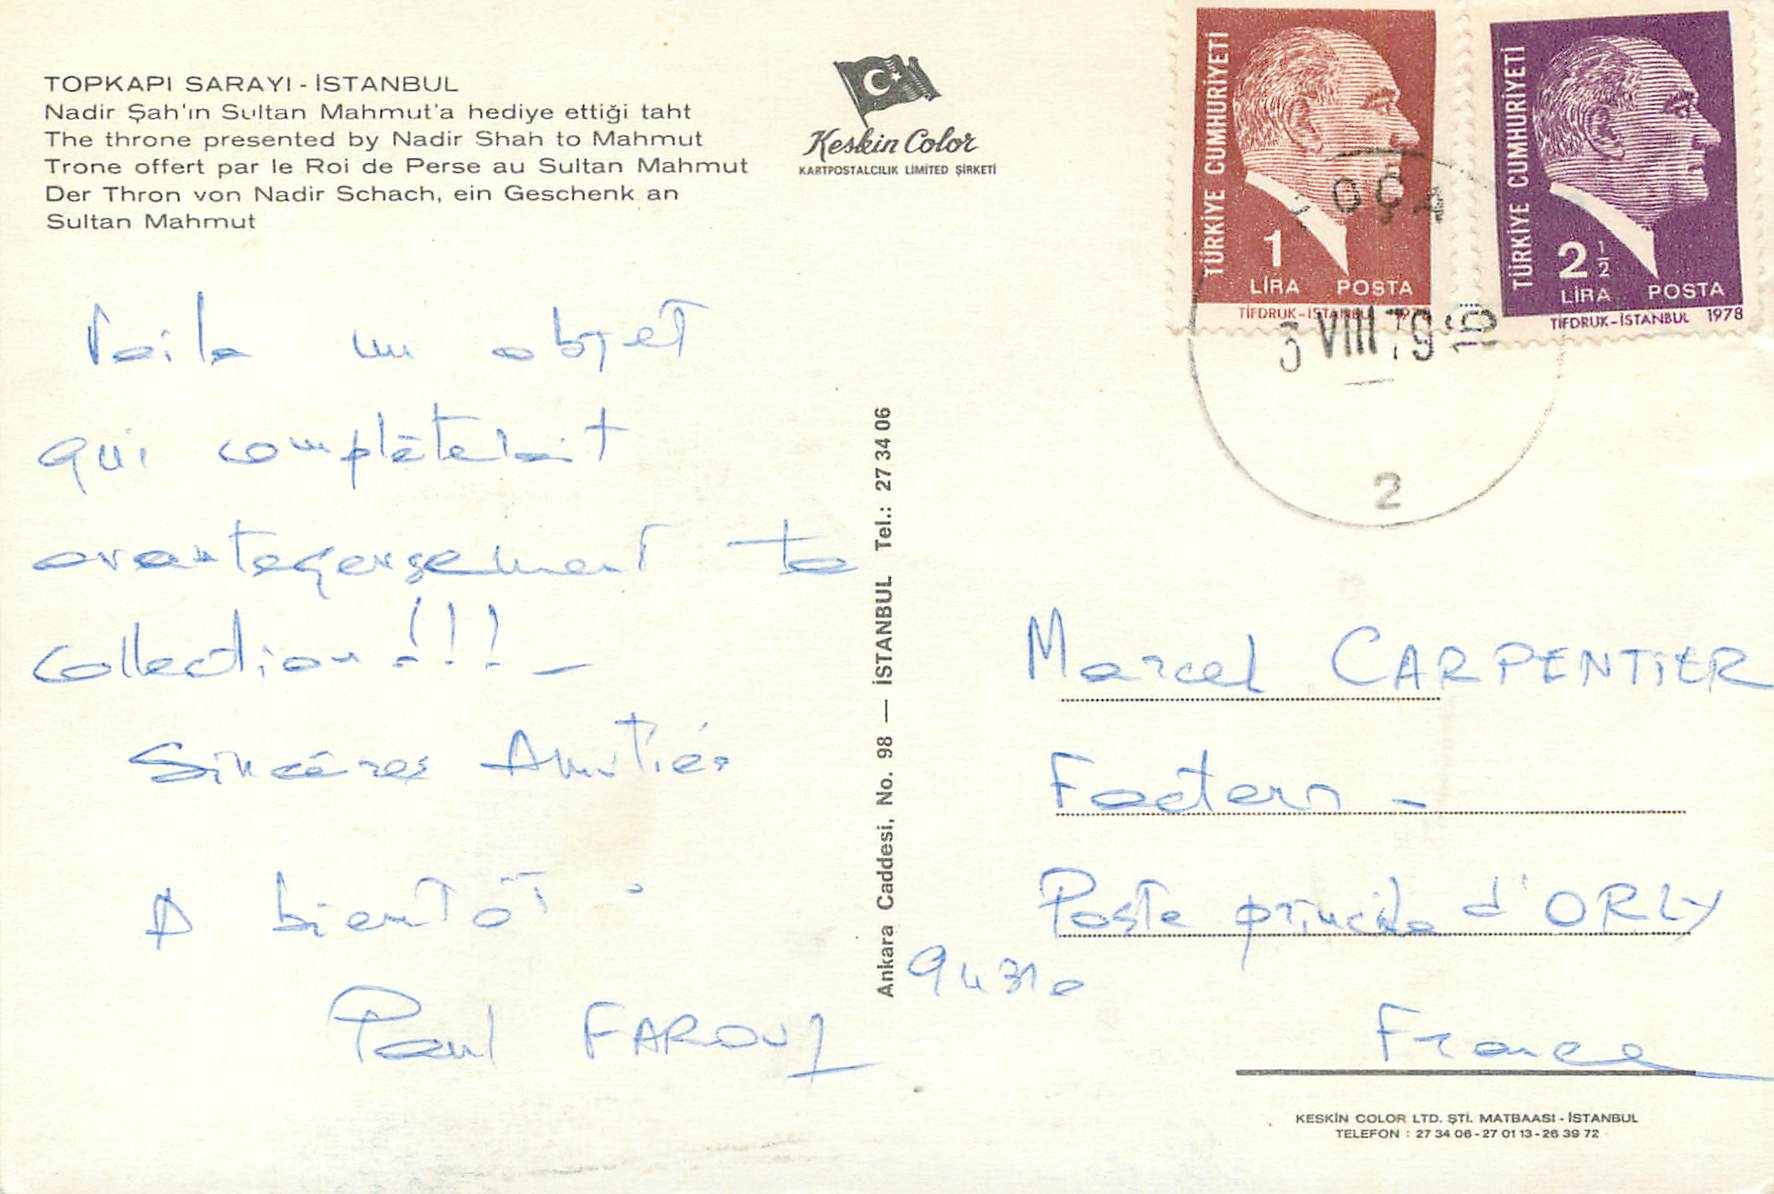 TOPKAPI SARAYI - İSTANBUL
Nadir Şah'ın Sultan Mahmut'a hediye ettiği taht
The throne presented by Nadir Shah to Mahmut
Trone offert par le Roi de Perse au Sultan Mahmut
Der Thron von Nadir Schach, ein Geschenk an
Sultan Mahmut
Keskin Color
KARTPOSTALCILIK LIMITED ŞİRKETİ
TÜRKİYE CUMHURİYETİ
1
LİRA POSTA
TİFDRUK-İSTANBUL
TÜRKİYE CUMHURİYETİ
2 1/2
LİRA POSTA
TİFDRUK-İSTANBUL 1978
OÇA
3 VIII 79
2
Voila un objet
qui complèterait
avantageusement ta
collection !!! -
Sincères Amitiés
A bientôt
Paul FAROUZ
Ankara Caddesi, No. 98 — İSTANBUL Tel.: 27 34 06
Marcel CARPENTIER
Facteur -
Poste principale d'ORLY
94310
France
KESKİN COLOR LTD. ŞTİ. MATBAASI - İSTANBUL
TELEFON : 27 34 06 - 27 01 13 - 26 39 72